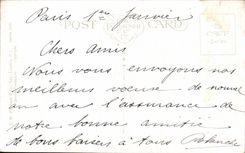 Paris 1er Janvier
POST CARD
Chers Amis
Nous vous envoyons nos
meilleurs voeux de nouvel
an avec l'assurance de
notre bonne amitié
de bons baisers à tous